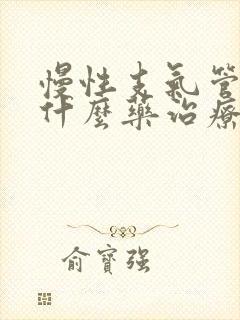 慢性支气管
什麼藥治療
俞寶强